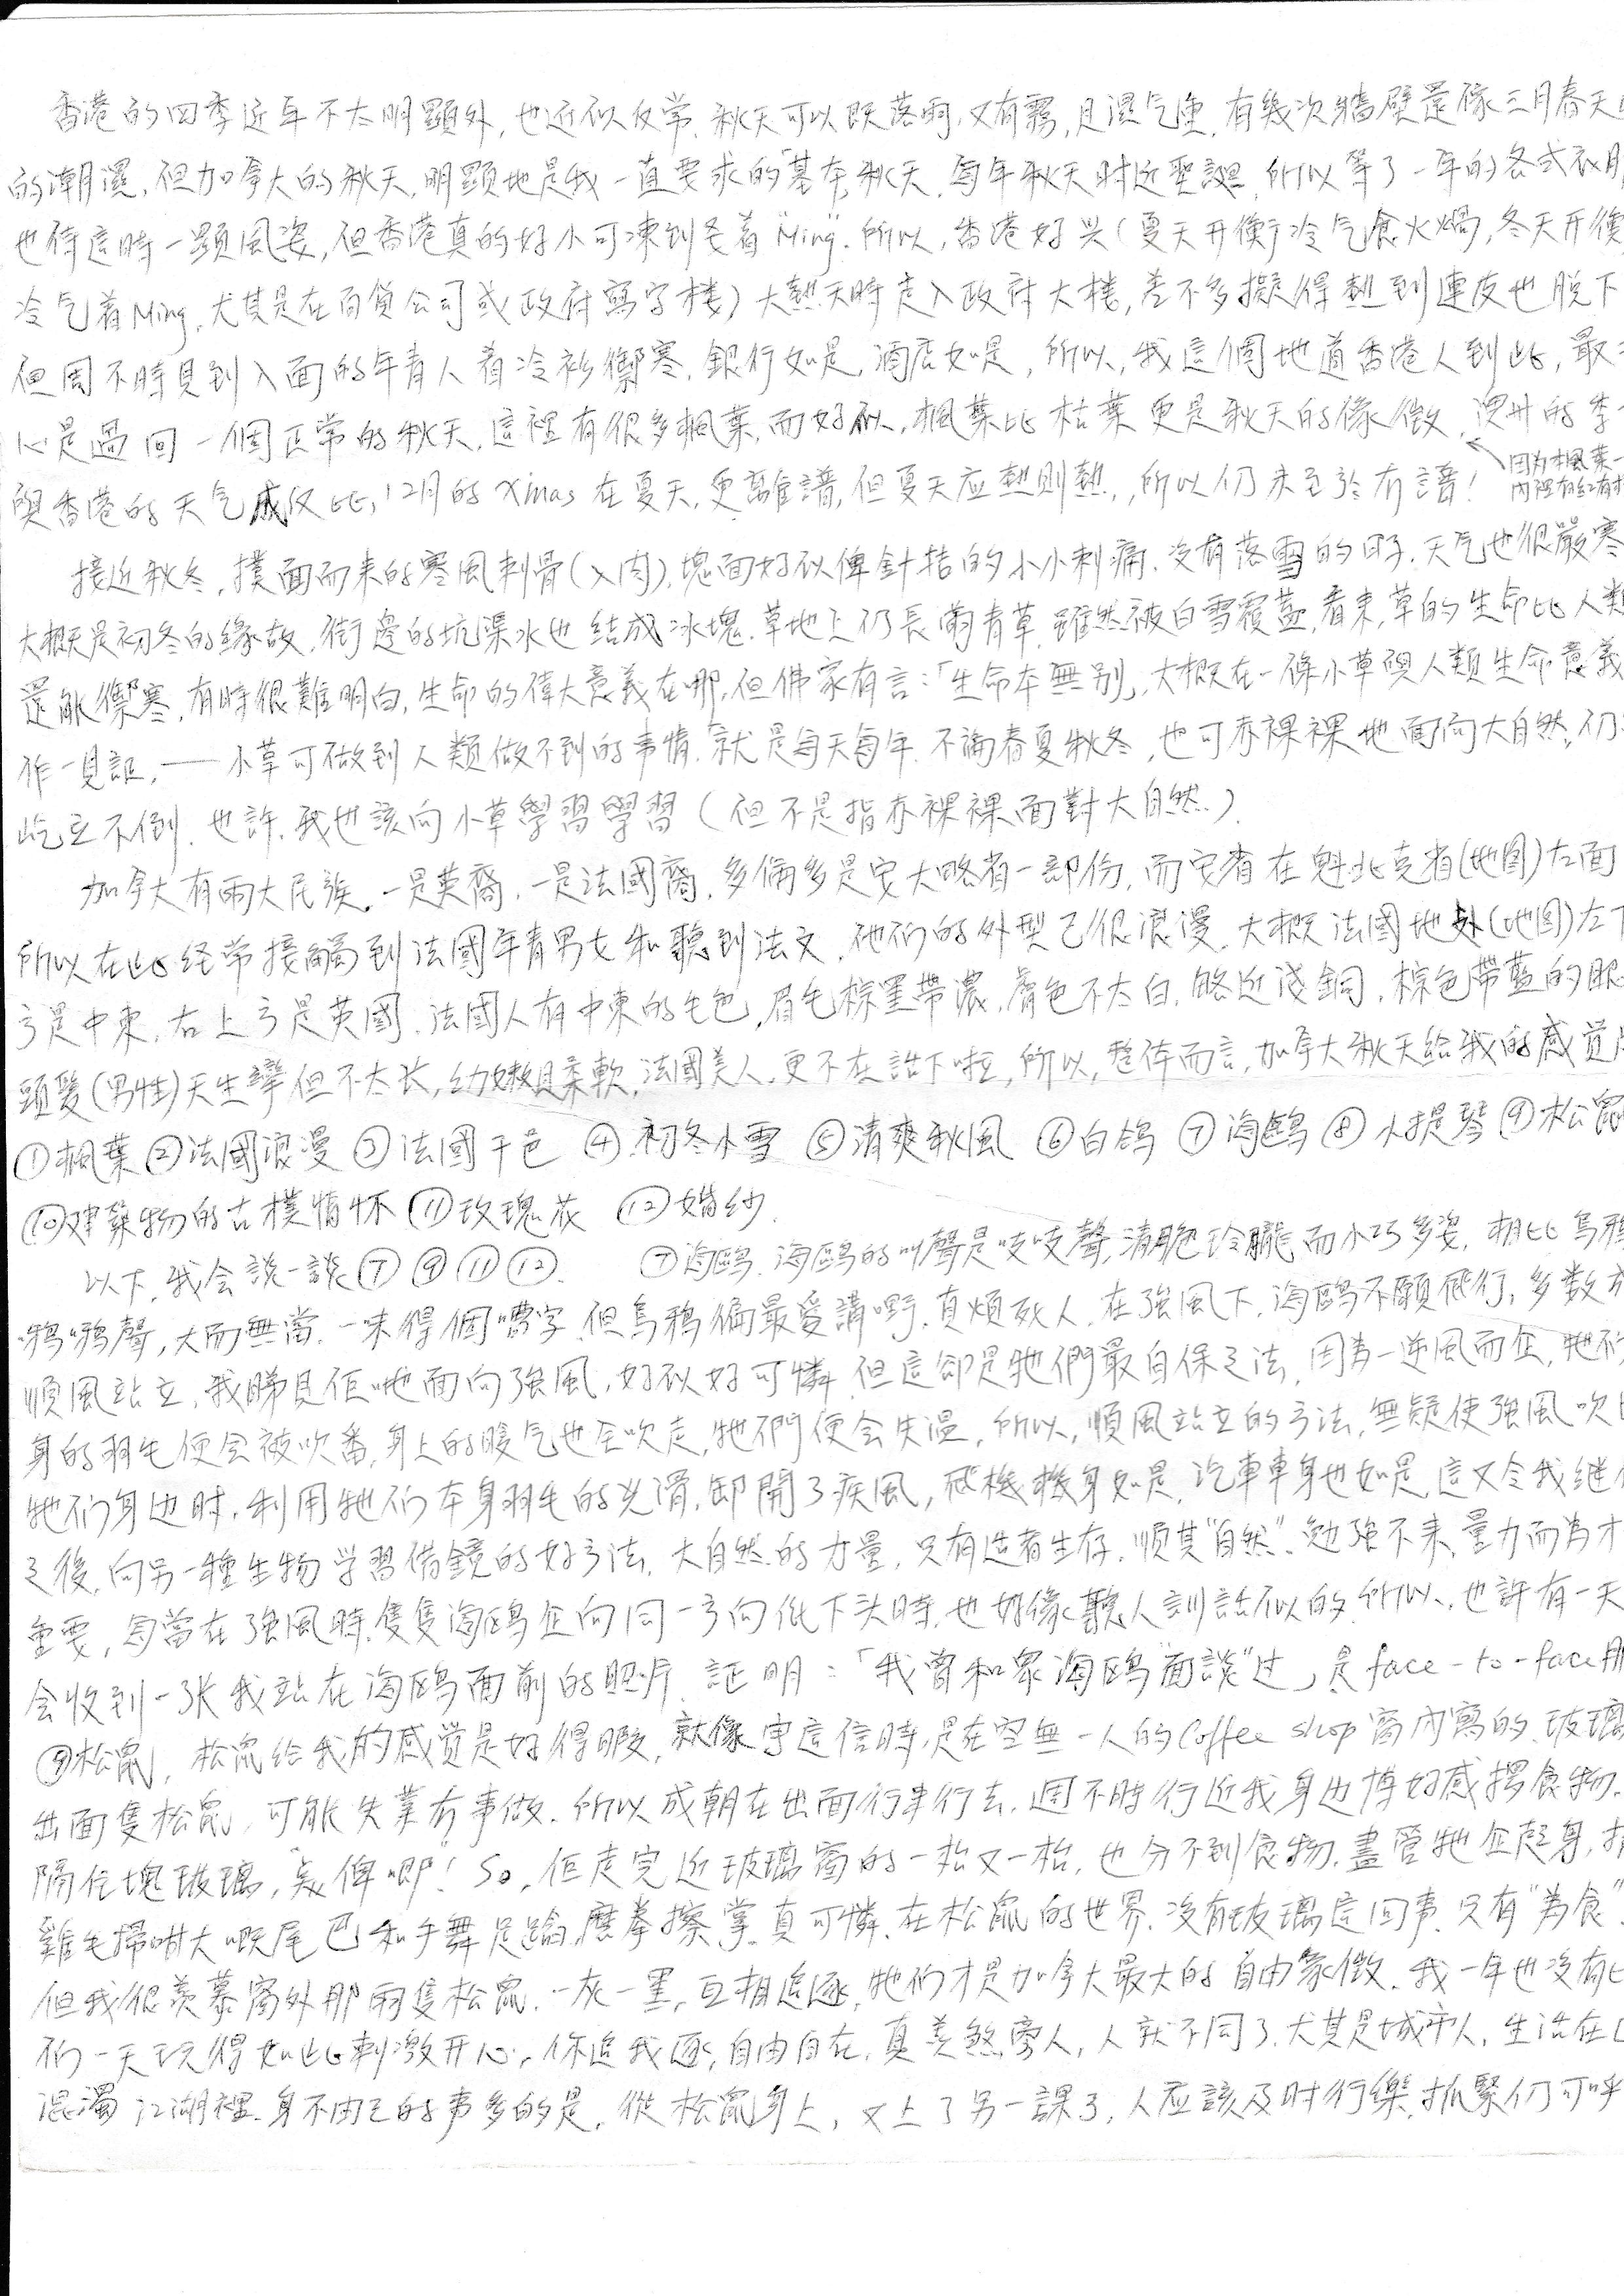 香港的四季近年不太明顯外,也近似反常.秋天可以既落雨,又有霧,且濕气重,有幾次牆壁還像三月春天
的潮濕,但加拿大的秋天,明顯地是我一直要求的"基本"秋天,每年秋天时近聖誕,所以等了一年的各式衣服
也待這時一顯風姿,但香港真的好小可凍到要着"Ming".所以,香港好兴(夏天开衡冷气食火焗,冬天开衡
冷气着Ming,尤其是在百貨公司或政府寫字楼)大熱天時走入政府大楼,差不多擬得熱到連皮也脫下
但周不時見到入面的年青人着冷衫禦寒,銀行如是,酒店如是,所以,我這個地道香港人到此,最
心是過回一個正常的秋天,這裡有很多楓葉,而好似,楓葉比枯葉更是秋天的像徵,澳州的季
因为楓葉一
內裡有紅有
與香港的天气成反比,12月的Xmas在夏天,更離譜,但夏天应熱則熱,所以仍未至於冇譜!
接近秋冬,撲面而来的寒風刺骨(入肉),塊面好似俾針拮的小小刺痛.没有落雪的日子,天气也很嚴寒
大概是初冬的緣故,街邊的坑渠水也結成冰塊.草地上仍長滿青草,雖然被白雪覆蓋,看来,草的生命比人類
還能禦寒,有時很難明白,生命的偉大意義在哪,但佛家有言:「生命本無别」,大概在一條小草與人類生命意義
作一見証,——小草可做到人類做不到的事情,就是每天每年,不論春夏秋冬,也可赤裸裸地面向大自然,仍
屹立不倒.也許,我也該向小草學習學習(但不是指赤裸裸面對大自然).
加拿大有兩大民族,一是英裔,一是法國裔,多倫多是安大略省一部份,而安省在魁北克省(地图)左面
所以在此经常接觸到法國年青男女和聽到法文,他们的外型已很浪漫,大概法國地处(地图)左下
方是中東,右上方是英國,法國人有中東的毛色,眉毛棕黑帶濃,膚色不太白,略近浅銅,棕色帶藍的眼
頭髮(男性)天生攣但不太长,幼嫩且柔軟,法國美人,更不在話下啦,所以,整体而言,加拿大秋天給我的感觉
①楓葉 ②法國浪漫 ③法國干邑 ④初冬小雪 ⑤清爽秋風 ⑥白鸽 ⑦海鷗 ⑧小提琴 ⑨松鼠
⑩建築物的古樸情怀 ⑪玫瑰花 ⑫婚纱.
以下,我会談一談⑦⑨⑪⑫. ⑦海鷗.海鷗的叫聲是吱吱聲,清脆玲瓏而小巧多姿,相比烏鴉
鴉鴉聲,大而無當.一味得個嘈字,但烏鴉偏最爱講嘢,真煩死人.在強風下,海鷗不願飛行,多数
順風站立,我睇見佢哋面向強風,好似好可憐,但這卻是牠們最自保之法,因为一逆風而企,牠们
身的羽毛便会被吹番,身上的暖气也全吹走,牠們便会失温,所以,順風站立的方法,無疑使強風吹
牠们身边时,利用牠们本身羽毛的光滑,卸開了疾風,飛機機身如是,汽車車身也如是,這又令我继
之後,向另一種生物学習借鏡的好方法.大自然的力量,只有适者生存,順其"自然",勉強不来,量力而为才
重要,每當在強風時,隻隻海鷗企向同一方向低下头時,也好像聽人訓話似的,所以,也許有一天
会收到一张我站在海鷗面前的照片,証明:「我曾和眾海鷗"面談"过」,是face-to-face
⑨松鼠,松鼠给我的感觉是好得暇,就像寫這信時,是在空無一人的Coffee shop窗內寫的,玻璃
出面隻松鼠,可能失業冇事做.所以成朝在出面行来行去,週不時行近我身边博好感攞食物.
隔住塊玻璃,點俾唧!So,佢走完近玻璃窗的一枱又一枱,也分不到食物,盡管牠企起身,
雞毛掃咁大嘅尾巴和手舞足蹈,磨拳擦掌,真可憐.在松鼠的世界,没有玻璃這回事,只有"為食"
但我很羡慕窗外那兩隻松鼠,一灰一黑,互相追逐,牠们才是加拿大最大的自由象徵.我一年也没有
们一天玩得如此刺激开心,你追我逐,自由自在,真羡煞旁人,人就不同了,尤其是城市人,生活在
混濁江湖裡,身不由己的事多的是,從松鼠身上,又上了另一課了,人应該及时行樂,抓緊仍可呼